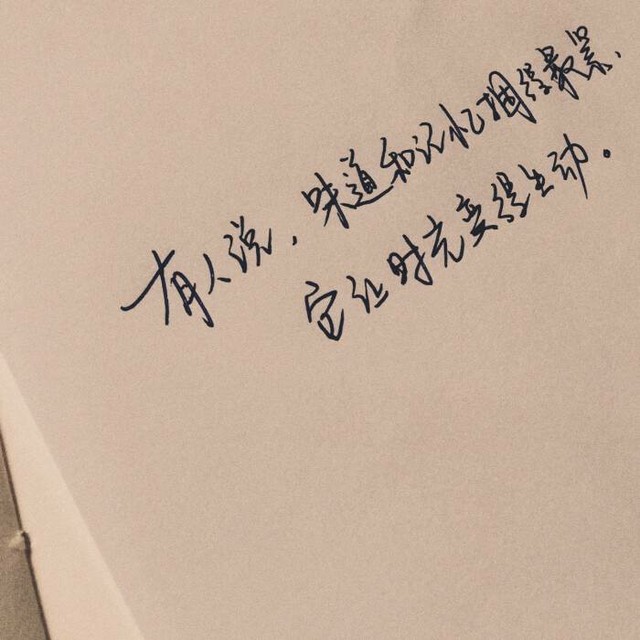 有人说，味道和记忆拥得最紧，
它让时光变得生动。